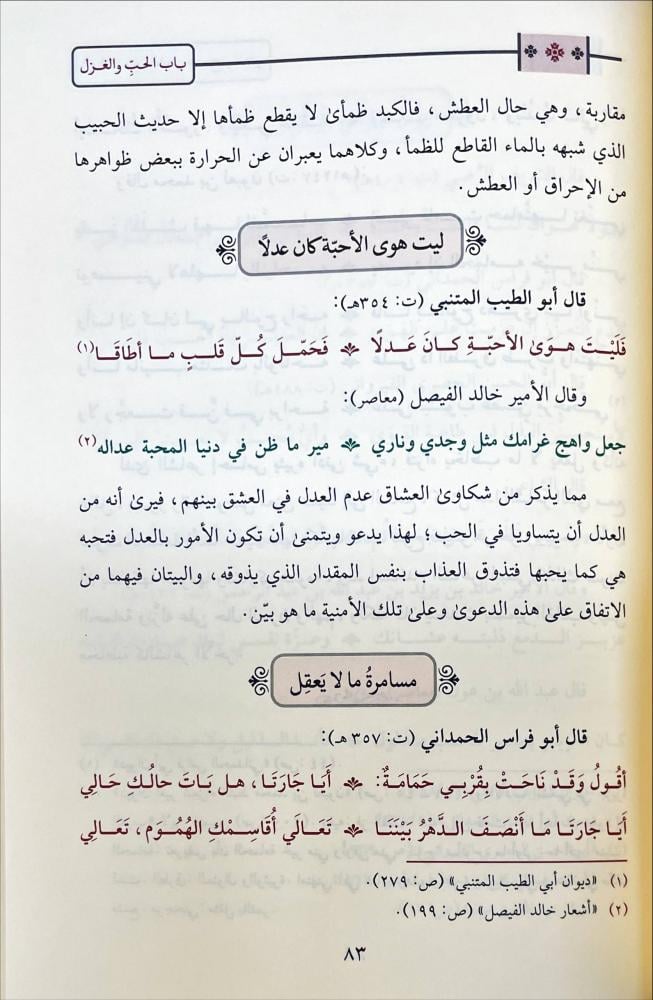 باب الحبّ والغزل
مقاربة، وهي حال العطش، فالكبد ظمأىٰ لا يقطع ظمأها إلا حديث الحبيب
الذي شبهه بالماء القاطع للظمأ، وكلاهما يعبران عن الحرارة ببعض ظواهرها
من الإحراق أو العطش.
ليت هوى الأحبّة كان عدلًا
قال أبو الطيب المتنبي (ت: ٣٥٤هـ):
فَلَيْتَ هـوَىٰ الأحبّـةِ كـانَ عَـدلًا فَحَمّـلَ كُـلّ قَلـبٍ مـا أطَاقَـا(١)
وقال الأمير خالد الفيصل (معاصر):
جعل واهج غرامك مثل وجدي وناري مير ما ظن في دنيا المحبة عداله(٢)
مما يذكر من شكاوىٰ العشاق عدم العدل في العشق بينهم، فيرىٰ أنه من
العدل أن يتساويا في الحب؛ لهذا يدعو ويتمنىٰ أن تكون الأمور بالعدل فتحبه
هي كما يحبها فتذوق العذاب بنفس المقدار الذي يذوقه، والبيتان فيهما من
الاتفاق علىٰ هذه الدعوىٰ وعلىٰ تلك الأمنية ما هو بيّن.
مسامرةُ ما لا يَعقِل
قال أبو فراس الحمداني (ت: ٣٥٧ هـ):
أقُولُ وَقَدْ نَاحَتْ بِقُرْبِي حَمَامَةٌ: أَيَا جَارَتَا، هـل بَـاتَ حالـُكِ حَالِي
أيَا جَارَتَا مَا أَنْصَفَ الدَّهْرُ بَيْنَنَا تَعَالَيْ أُقَاسِمْكِ الهُمُوم، تَعَالِي
(١) «ديوان أبي الطيب المتنبي» (ص: ٢٧٩).
(٢) «أشعار خالد الفيصل» (ص: ١٩٩).
٨٣